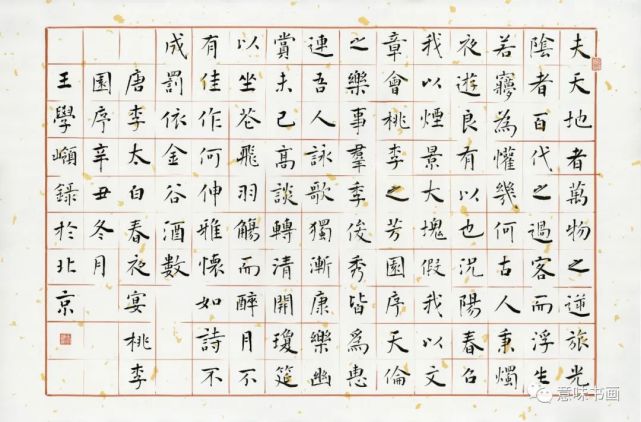 夫天地者萬物之逆旅光
陰者百代之過客而浮生
若夢為懽幾何古人秉燭
夜遊良有以也況陽春召
我以煙景大塊假我以文
章會桃李之芳園序天倫
之樂事羣季俊秀皆為惠
連吾人詠歌獨慚康樂幽
賞未已高談轉清開瓊筵
以坐花飛羽觴而醉月不
有佳作何伸雅懷如詩不
成罰依金谷酒數
唐李太白春夜宴桃李
園序辛丑冬月
王學嶺錄於北京
意味书画